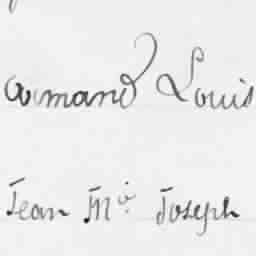 Armand Louis
Jean M. Joseph